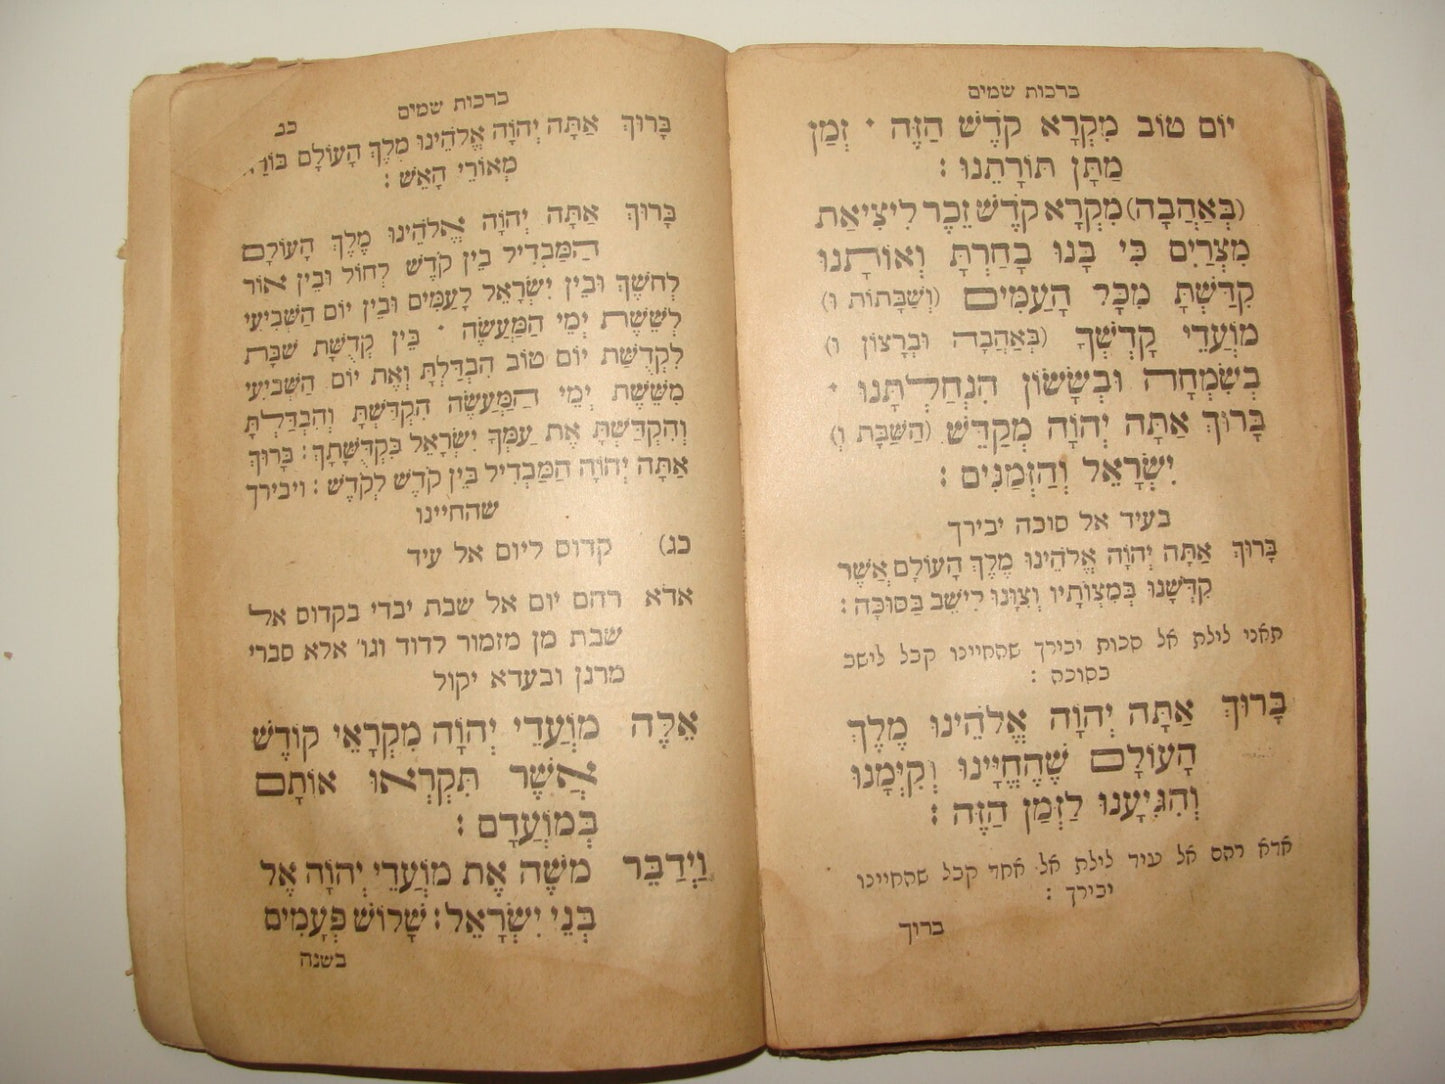 ברכות שמים
יוֹם טוֹב מִקְרָא קֹדֶשׁ הַזֶּה ׳ זְמַן
מַתַּן תּוֹרָתֵנוּ :
(בְּאַהֲבָה) מִקְרָא קֹדֶשׁ זֵכֶר לִיצִיאַת
מִצְרַיִם כִּי בָנוּ בָחַרְתָּ וְאוֹתָנוּ
קִדַּשְׁתָּ מִכָּל הָעַמִּים (וְשַׁבָּתוֹת וּ)
מוֹעֲדֵי קָדְשְׁךָ (בְּאַהֲבָה וּבְרָצוֹן וּ)
בְשִׂמְחָה וּבְשָׂשׂוֹן הִנְחַלְתָּנוּ ׳
בָּרוּךְ אַתָּה יְהוָֹה מְקַדֵּשׁ (הַשַּׁבָּת וְ)
יִשְׂרָאֵל וְהַזְּמַנִּים :
בעיד אל סוכה יבירך
בָּרוּךְ אַתָּה יְהוָֹה אֱלֹהֵינוּ מֶלֶךְ הָעוֹלָם אֲשֶׁר
קִדְּשָׁנוּ בְּמִצְוֹתָיו וְצִוָּנוּ לֵישֵׁב בַּסּוּכָּה :
תאני לילת אל סכות יבירך שהחיינו קבל לישב
בסוכה :
בָּרוּךְ אַתָּה יְהוָֹה אֱלֹהֵינוּ מֶלֶךְ
הָעוֹלָם שֶׁהֶחֱיָּינוּ וְקִיְּמָנוּ
וְהִגִּיעָנוּ לַזְּמַן הַזֶּה :
אדא רחם אל עיד לילת אל אחד קבל שהחיינו
יבירך :
ברוך
ברכות שמים
כג
בָּרוּךְ אַתָּה יְהוָֹה אֱלֹהֵינוּ מֶלֶךְ הָעוֹלָם בּוֹרֵא
מְאוֹרֵי הָאֵשׁ :
בָּרוּךְ אַתָּה יְהוָֹה אֱלֹהֵינוּ מֶלֶךְ הָעוֹלָם
הַמַּבְדִיל בֵּין קֹדֶשׁ לְחוֹל וּבֵין אוֹר
לְחֹשֶׁךְ וּבֵין יִשְׂרָאֵל לָעַמִּים וּבֵין יוֹם הַשְּׁבִיעִי
לְשֵׁשֶׁת יְמֵי הַמַּעֲשֶׂה ׳ בֵּין קְדֻשַּׁת שַׁבָּת
לִקְדֻשַּׁת יוֹם טוֹב הִבְדַּלְתָּ וְאֶת יוֹם הַשְּׁבִיעִי
מִשֵּׁשֶׁת יְמֵי הַמַּעֲשֶׂה הִקְדַּשְׁתָּ וְהִבְדַּלְתָּ
וְהִקְדַּשְׁתָּ אֶת עַמְּךָ יִשְׂרָאֵל בִּקְדֻשָּׁתָךְ : בָּרוּךְ
אַתָּה יְהוָֹה הַמַּבְדִיל בֵּין קֹדֶשׁ לְקֹדֶשׁ : ויבירך
שהחיינו
כג) קדוס ליום אל עיד
אדא רהם יום אל שבת יבדי בקדוס אל
שבת מן מזמור לדוד וגו׳ אלא סברי
מרנן ובעדא יקול
אֵלֶּה מוֹעֲדֵי יְהוָֹה מִקְרָאֵי קוֹדֶשׁ
אֲשֶׁר תִּקְרְאוּ אוֹתָם
בְּמוֹעֲדָם :
וַיְדַבֵּר מֹשֶׁה אֶת מוֹעֲדֵי יְהוָֹה אֶל
בְּנֵי יִשְׂרָאֵל : שָׁלוֹשׁ פְּעָמִים
בשנה